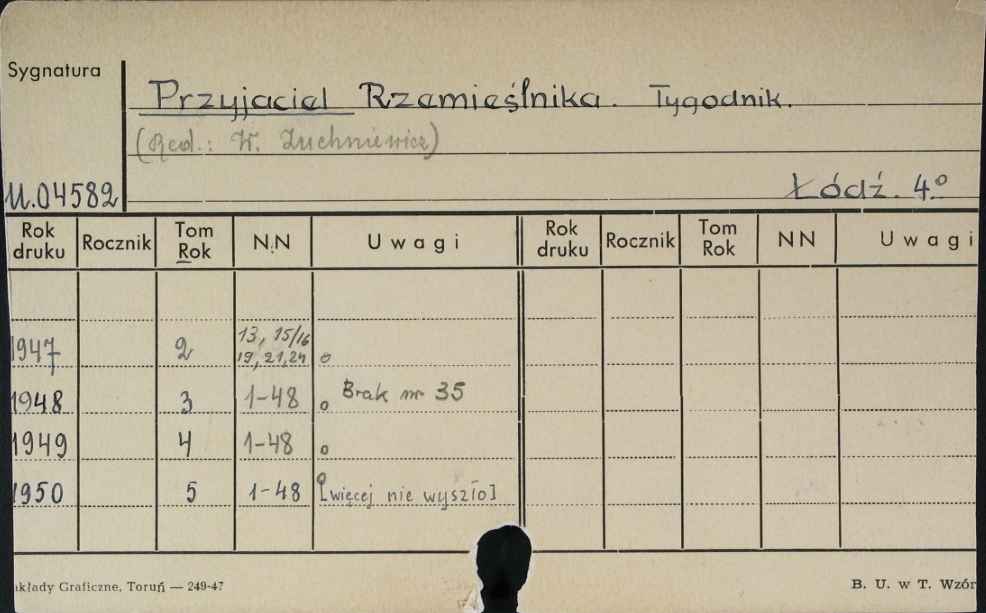 Sygnatura
Przyjaciel Rzemieślnika. Tygodnik.
(Red.: W. Żuchniewicz)
U.04582
Łódź. 4º
Rok druku Rocznik Tom Rok N.N Uwagi Rok druku Rocznik Tom Rok NN Uwagi
1947 2 13, 15/16 19, 21, 24 o
1948 3 1-48 o Brak nr 35
1949 4 1-48 o
1950 5 1-48 o [więcej nie wyszło]
akłady Graficzne, Toruń — 249-47
B. U. w T. Wzór